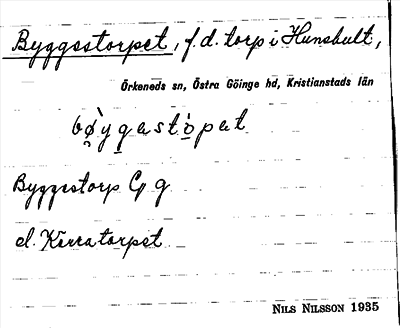 Byggestorpet, f.d. torp i Hunshult,
Örkeneds sn, Östra Göinge hd, Kristianstads län
Byggestorp Gg
el. Kerratorpet
NILS NILSSON 1935